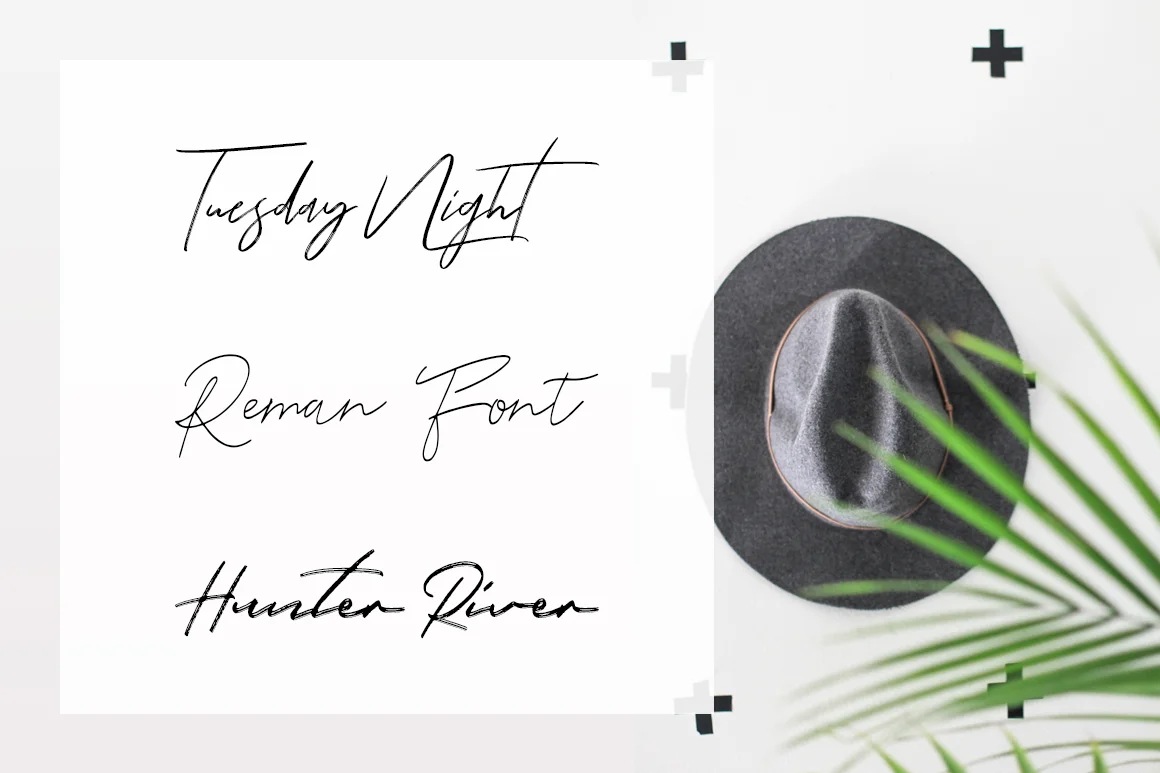 Tuesday Night
Reman Font
Hunter River